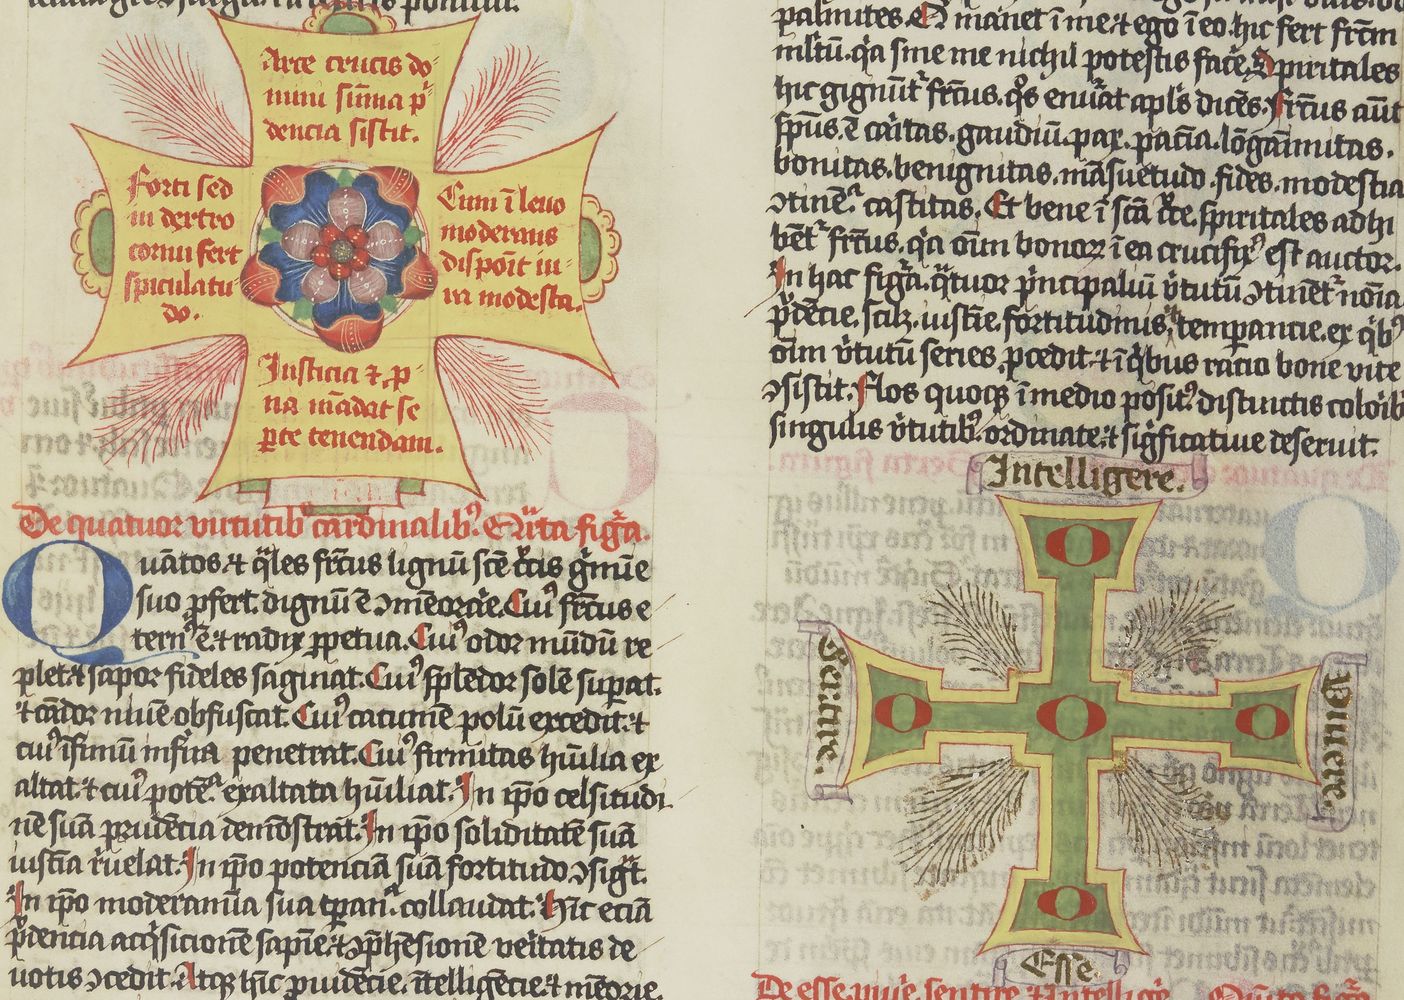 Arce crucis do-
mini sūma p̄
dencia sistit.
Forti sed
in dextro
cornu fert
spiculatu
do.
Cum ī leuo
moderans
dispoīt iu-
ra modesta.
Iusticia ⁊ p-
na mādat se
ꝑte tenendam.
De quatuor virtutib cardinalibꝰ. Qͣrta figͣa.
Quātos ⁊ qͣles frc̄tus lignū scē cͣcis gͣmīe
suo ꝓfert, dignū ē ꝯmēorāͤe. Cuiꝰ frc̄tus e
ternꝰ ē, ⁊ radix ꝑpetua. Cuiꝰ odor mūdū re
plet, ⁊ sapor fideles saginat. Cuiꝰ splēdor solē suꝑat.
⁊ cādor niuē obfuscat. Cuiꝰ cacumē polū excedit. ⁊
cuiꝰ īfimū infīa penetrat. Cuiꝰ firmitas hūilia ex
altat. ⁊ cuiꝰ potēͣ exaltata hūiliat. In ip̄o celsitudi
nē suā prudēcia demōstrat. In ip̄o soliditatē suā
iustīa rͤuelat. In ip̄o potenciā suā fortitudo ꝯsigͣt.
In ip̄o moderamīa sua tꝑanͣ. collaudat. Hic eciā
pͥdencia acqͥsicionē sapīe, ⁊ ꝯp̄hēsionē veritatis de
uotis ꝯcedit. Atqꝫ hic prudēcie, ītelligēcie, ⁊ mēorie,
palmites. Qͥ manet ī me, ⁊ ego ī eo, hic fert frc̄m
mltū. qͥa sine me nichil potestis facͤe. Spiritales
hic gignūtͬ frc̄tus. qͦs enūat apl̄s dicēs. Frc̄tus aūt
sp̄us, ē cāitas. gaudiū. pax. paciā. lōgāimitas.
bonitas. benignitas. māsuetudo. fides. modestia
ꝯtinēͣ. castitas. Et bene ī scā cͣce, spiritales adhi
bētͬ frc̄tus. qͥa oīm bonoꝝ ī ea crucifixꝰ est auctor.
In hac figͣa, qͣtuor pͥncipaliū vͥtutū ꝯtinētͬ noīa
pͥdēcie, scilꝫ, iustīe, fortitudinis, ⁊ temꝑancie. ex qͥbꝰ
oīm vͥtutū series, ꝓcedit. ⁊ ī qͥbus racio bone vite
ꝯsistit. Flos quoqꝫ ī medio positꝰ, distinctis coloīb
singulis vͥtutibꝰ, ordinate, ⁊ sigͥficatiue deseruit.
Intelligere.
O
Sentire.
O O O
Viuere.
O
Esse.
De esse, viuͤe, sentire, ⁊ intelligͤe.